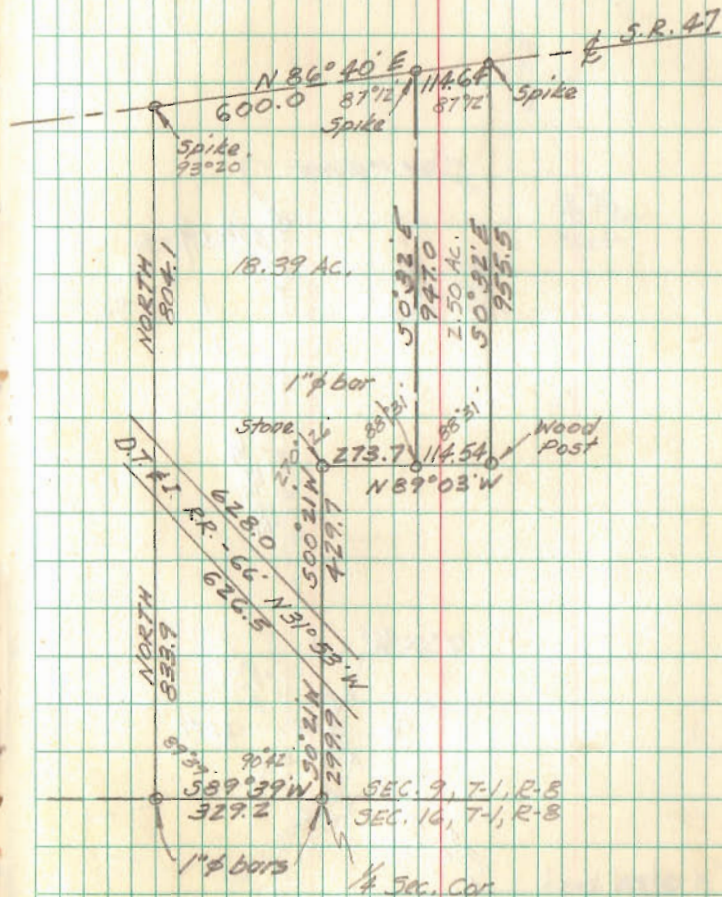 ℄ S.R. 47
N 86°40' E
600.0
87°12'
114.64
87°12'
Spike
Spike
Spike
93°20
NORTH
804.1
18.39 Ac.
S 0°32' E
947.0
2.50 AC.
S 0°32' E
955.5
1"ϕ bar
88°31'
88°31'
Stone
270°
273.7
114.54
Wood
Post
N 89°03' W
D.T. & I. R.R. - 66' N 31°53' W
628.0
626.5
S 00°21 W
429.7
NORTH
833.9
S 0°21 W
299.9
89°39
90°42
S 89°39' W
329.2
SEC. 9, T-1, R-8
SEC. 16, T-1, R-8
1"ϕ bars
1/4 Sec. Cor.